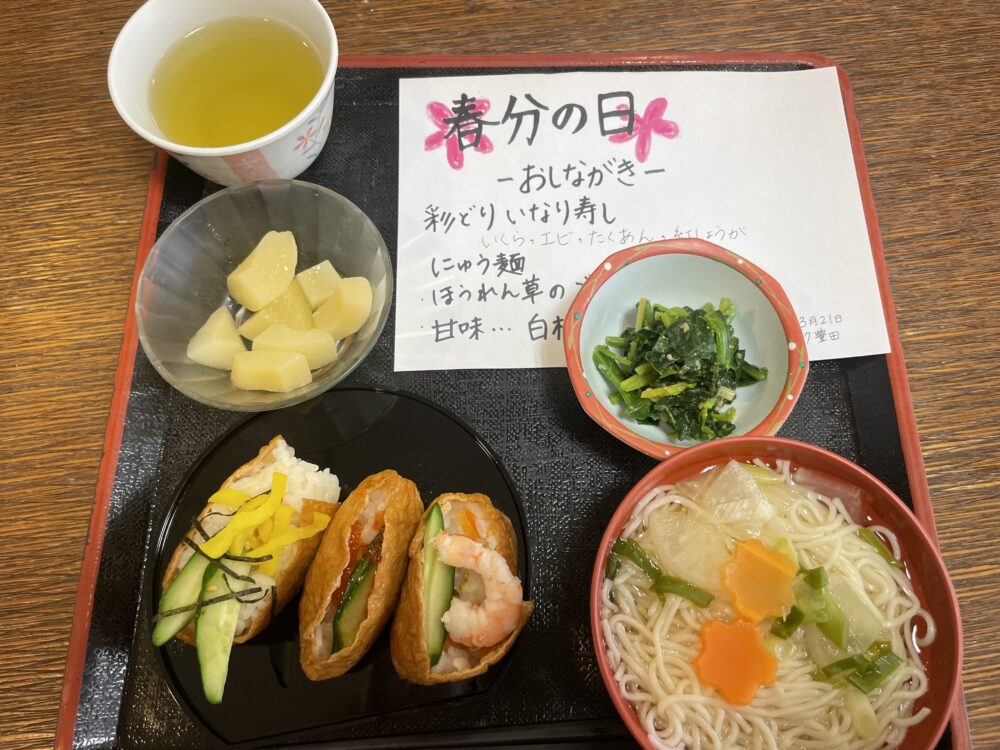 春分の日
-おしながき-
彩どりいなり寿し
いくら・エビ・たくあん・紅しょうが
にゅう麺
・ほうれん草の
・甘味… 白
3月21日
豊田